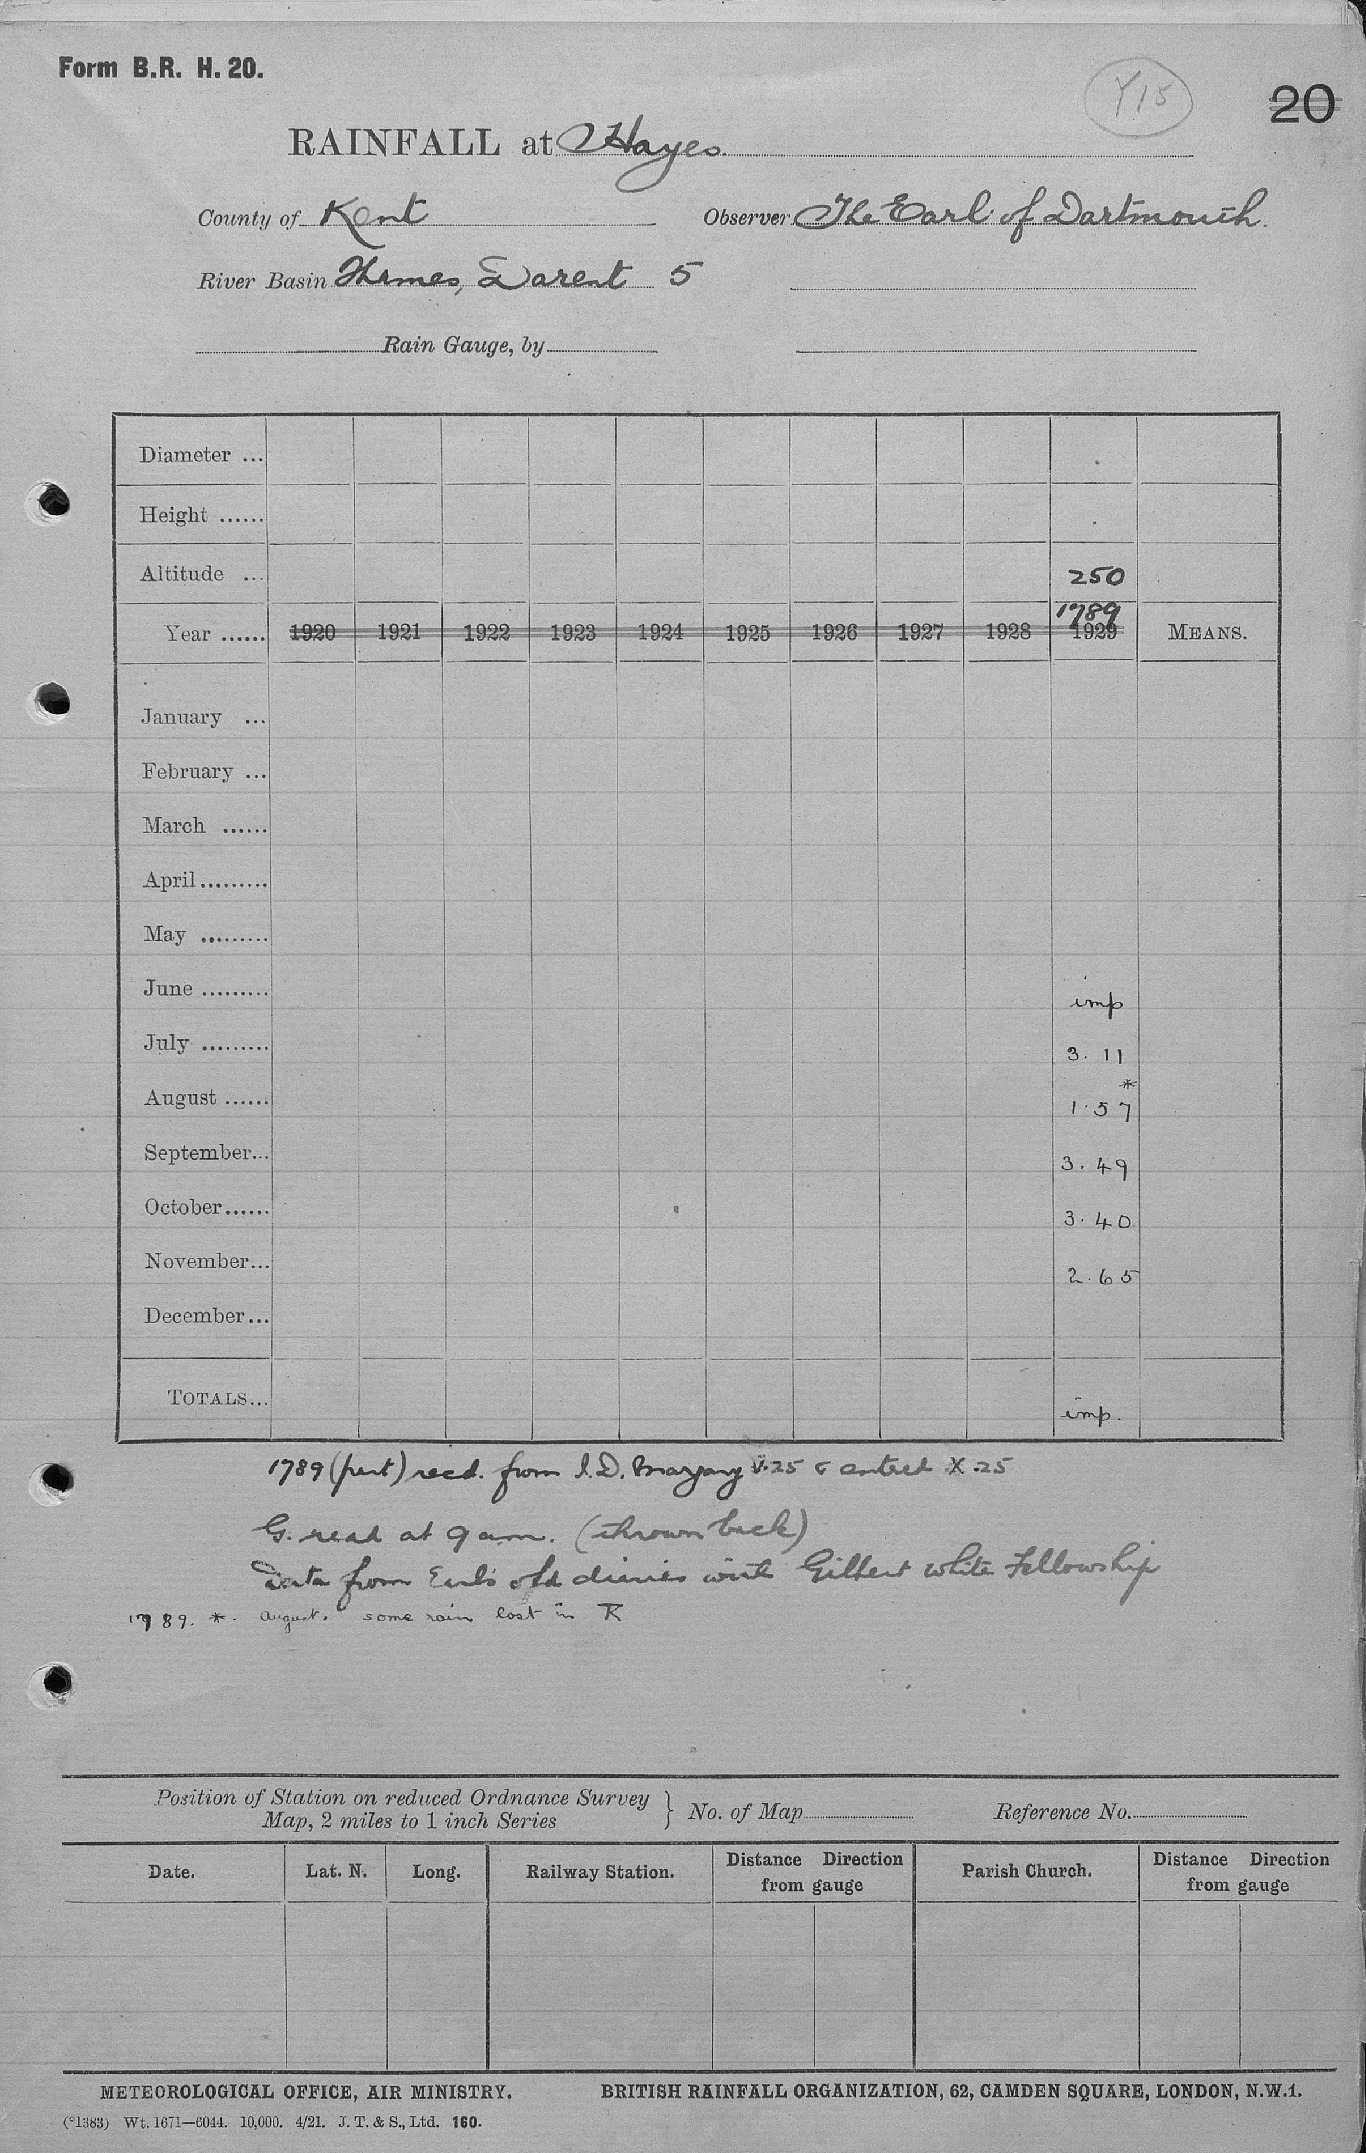 Form B.R. H. 20.
Y15
20
RAINFALL at Hayes.
County of Kent
Observer The Earl of Dartmouth.
River Basin Thames, Darent 5
Rain Gauge, by
Diameter ...
Height ......
Altitude ... 250
1789
Year ...... 1920 1921 1922 1923 1924 1925 1926 1927 1928 1929 MEANS.
January ...
February ...
March ......
April .........
May .........
June ......... imp
July ......... 3.11
*
August ...... 1.57
September... 3.49
October...... 3.40
November... 2.65
December...
TOTALS... imp.
1789 (part) recd. from I.D. Margary V.25 & entred X.25
G. read at 9 am. (thrown back)
Data from Earl's old diaries with Gilbert White Fellowship
1789. * August. some rain lost in
Position of Station on reduced Ordnance Survey
Map, 2 miles to 1 inch Series
} No. of Map
Reference No.
Date. Lat. N. Long. Railway Station. Distance Direction from gauge Parish Church. Distance Direction from gauge
METEOROLOGICAL OFFICE, AIR MINISTRY. BRITISH RAINFALL ORGANIZATION, 62, CAMDEN SQUARE, LONDON, N.W.1.
(*1383) Wt. 1671—6044. 10,000. 4/21. J. T. & S., Ltd. 160.